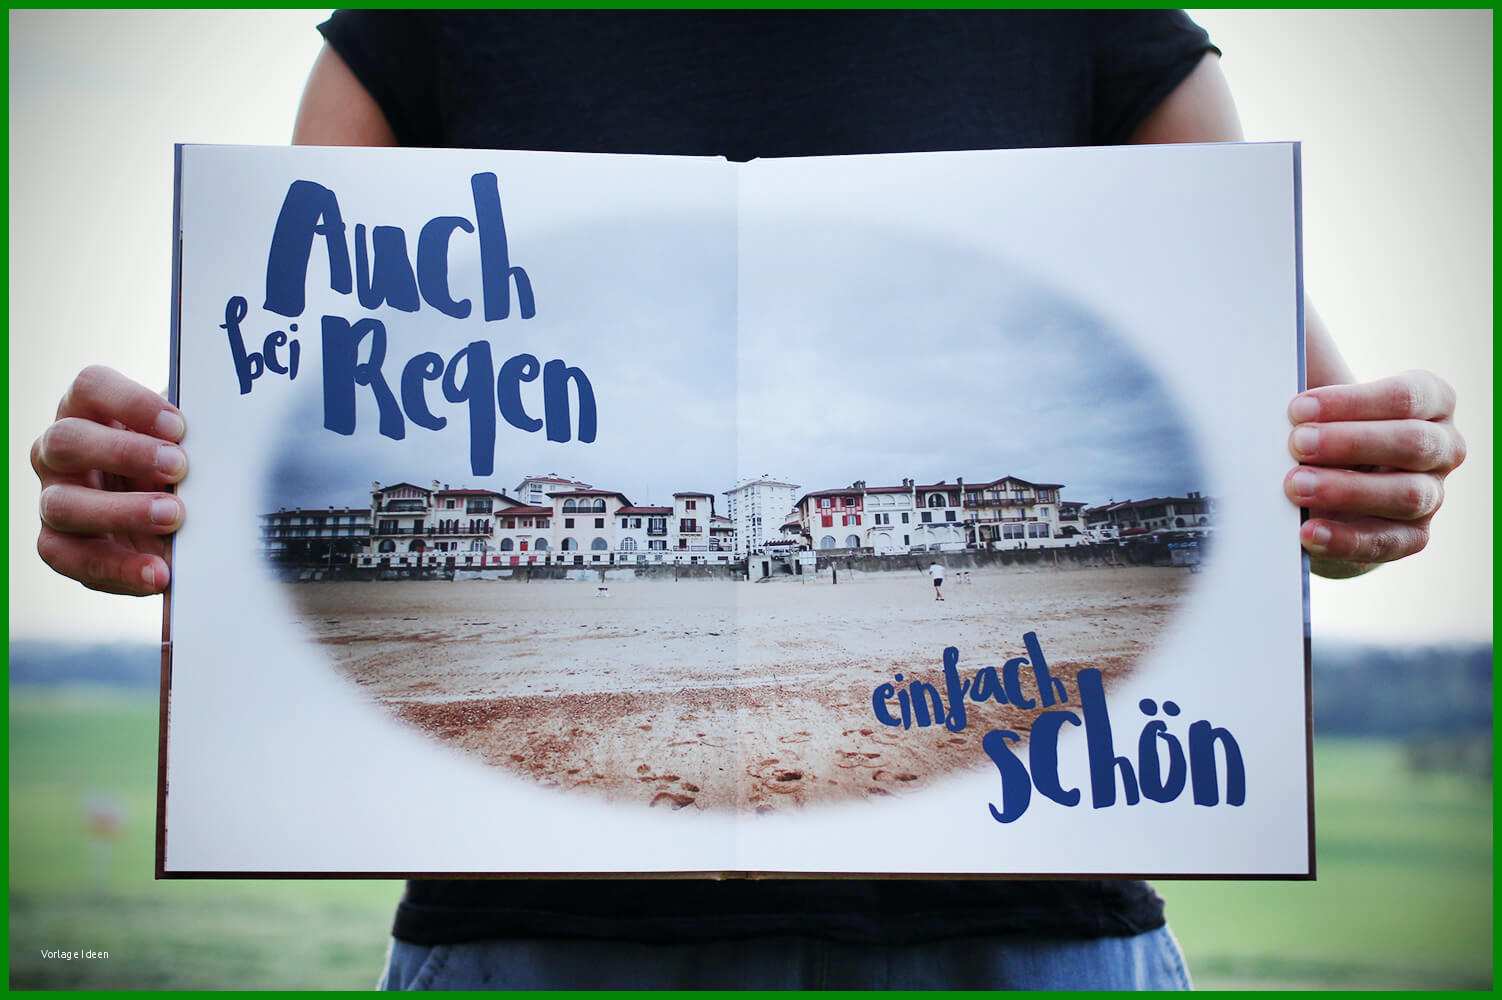 Auch
bei Regen
einfach
schön
Vorlage Ideen